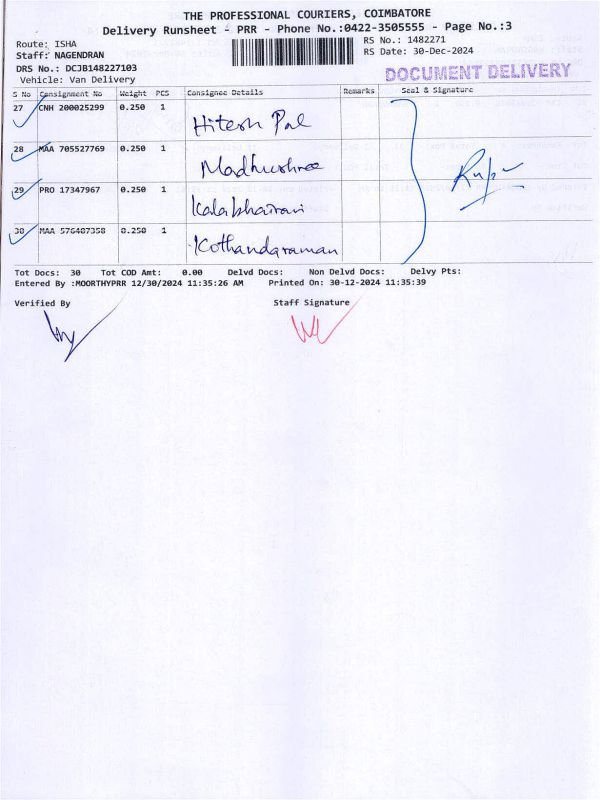 THE PROFESSIONAL COURIERS, COIMBATORE
Delivery Runsheet - PRR - Phone No.:0422-3505555 - Page No.:3
Route: ISHA RS No.: 1482271
Staff: NAGENDRAN RS Date: 30-Dec-2024
DRS No.: DCJB148227103 DOCUMENT DELIVERY
Vehicle: Van Delivery
S No Consignment No Weight PCS Consignee Details Remarks Seal & Signature
27 CNH 200025299 0.250 1 Hitesh Pal
28 MAA 705527769 0.250 1 Madhushree
29 PRO 17347967 0.250 1 Kalabhairavi
30 MAA 576407358 0.250 1 Kothandaraman
Tot Docs: 30 Tot COD Amt: 0.00 Delvd Docs: Non Delvd Docs: Delvy Pts:
Entered By :MOORTHYPRR 12/30/2024 11:35:26 AM Printed On: 30-12-2024 11:35:39
Verified By Staff Signature